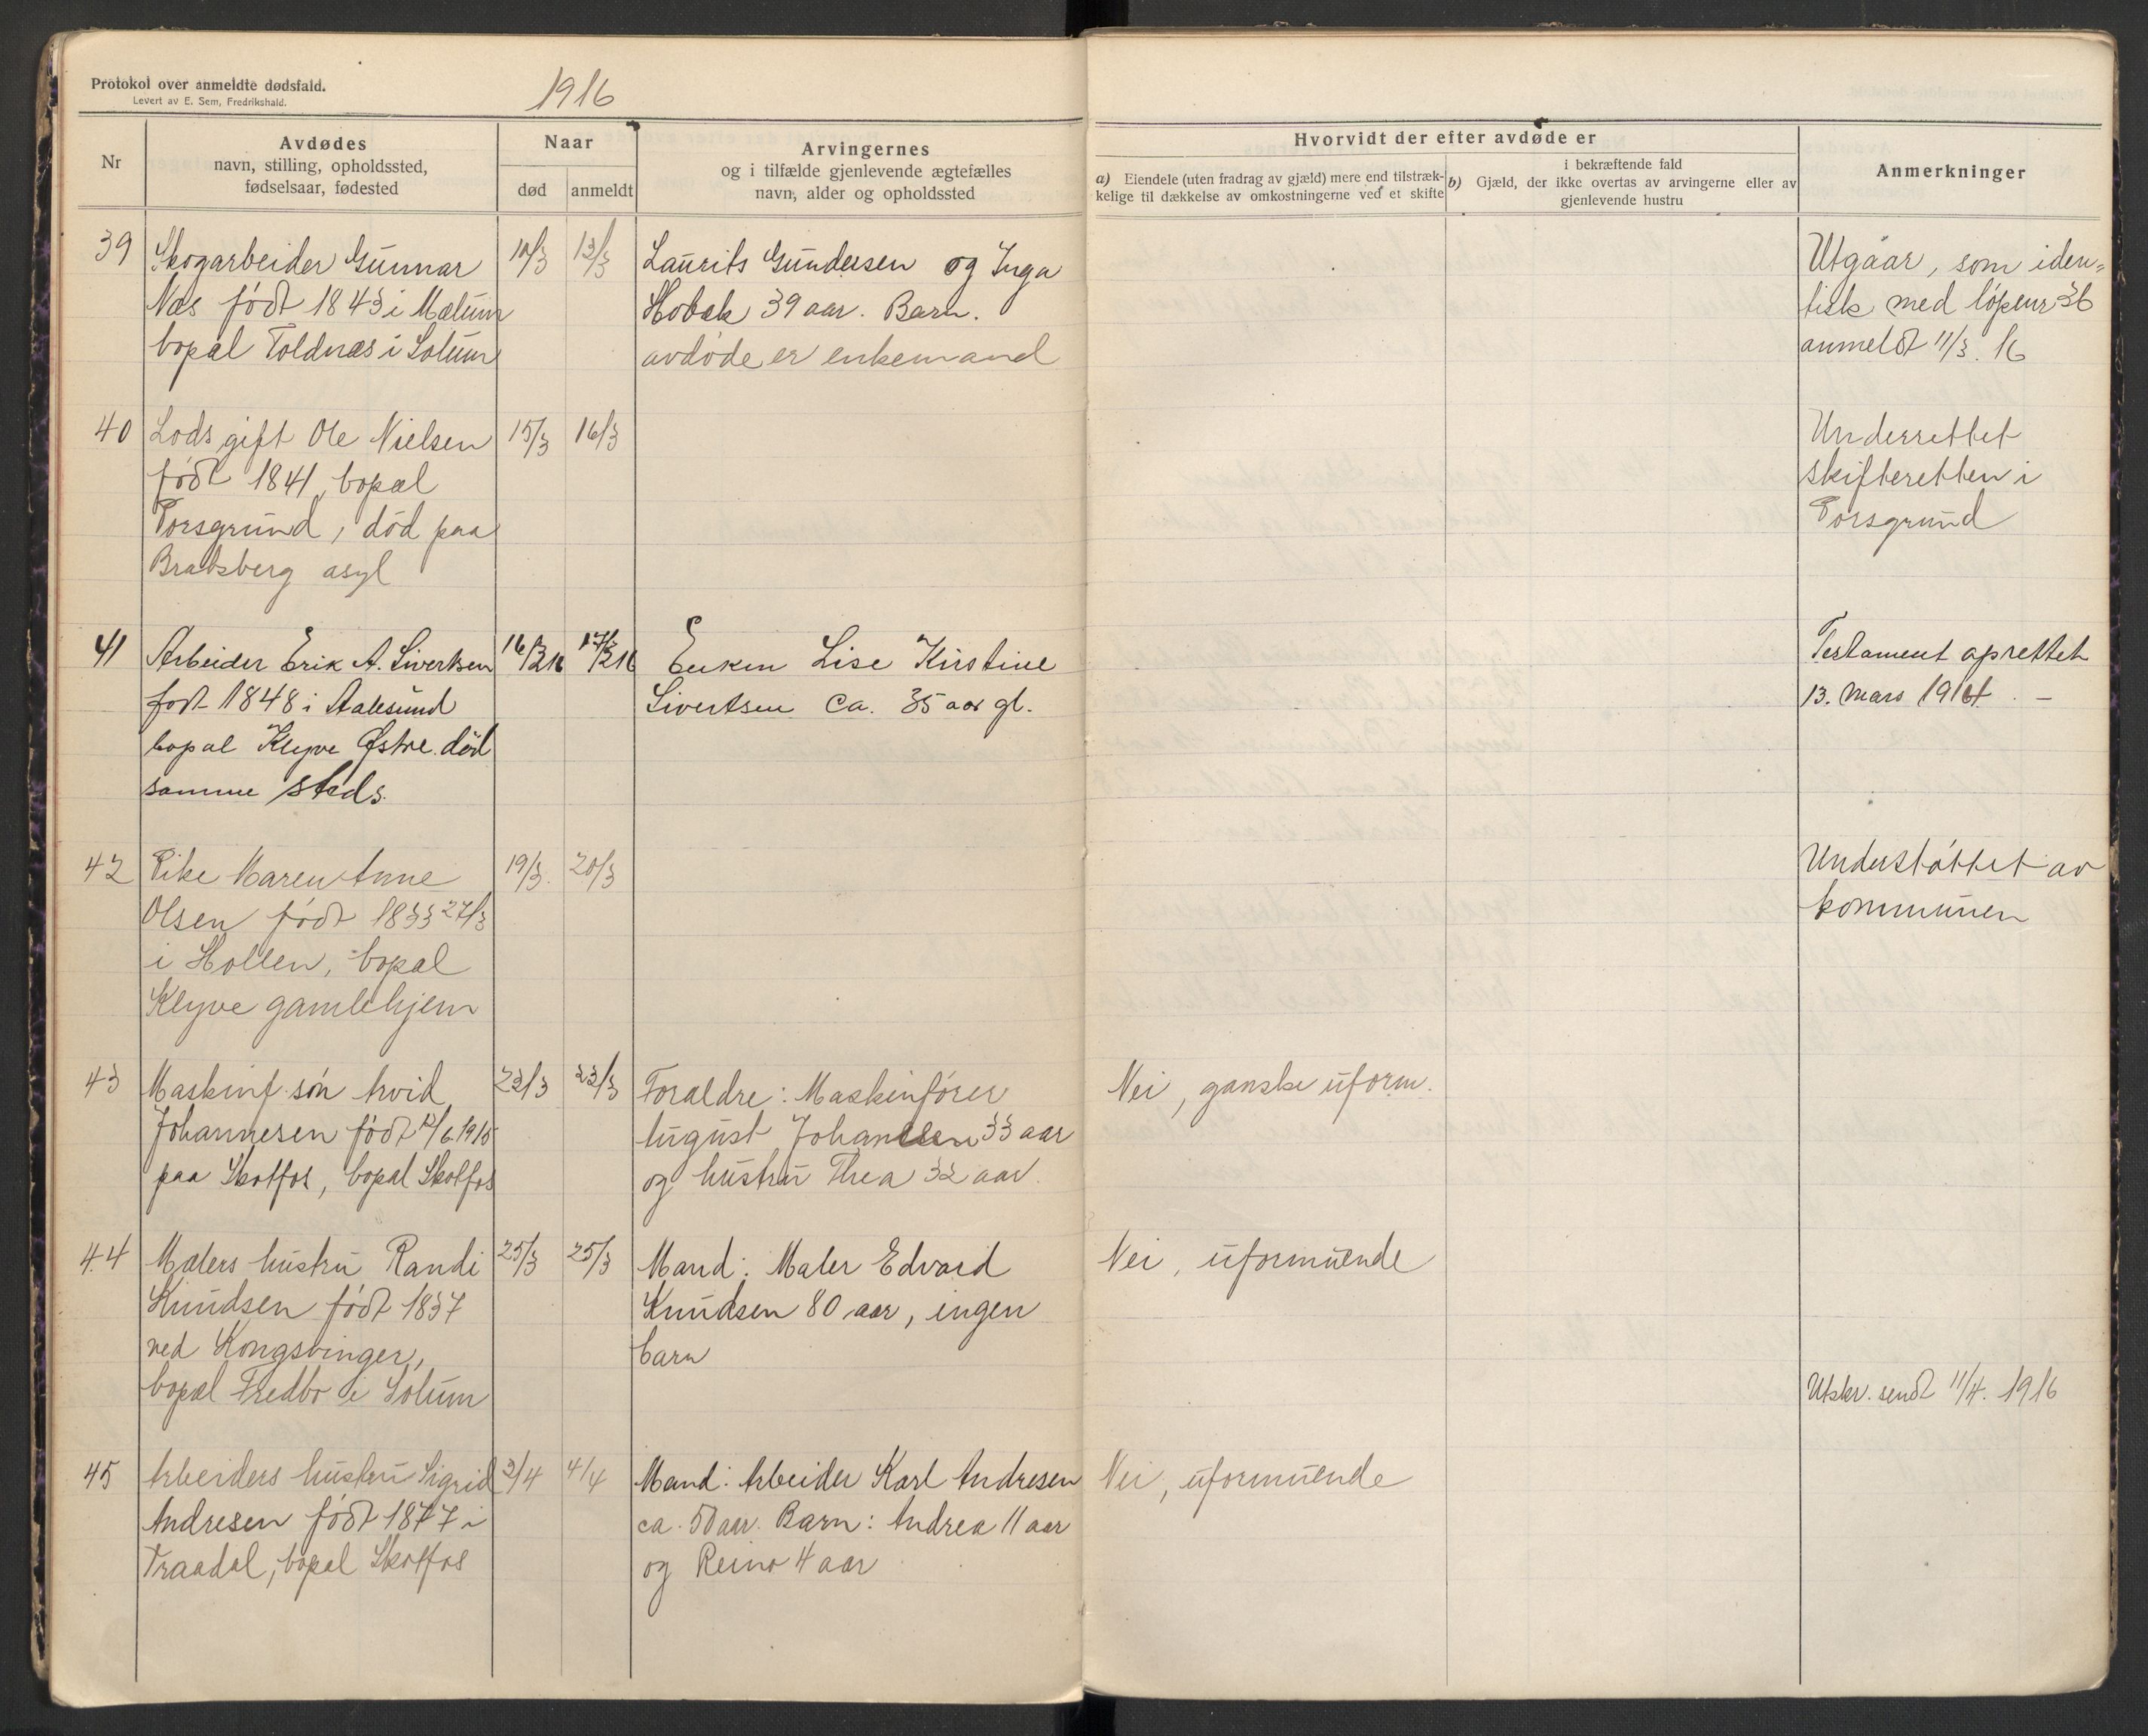 Protokol over anmeldte dødsfald.
Levert av E. Sem, Fredrikshald.
1916
Nr
Avdødes
navn, stilling, opholdssted,
fødselsaar, fødested
Naar
død
anmeldt
Arvingernes
og i tilfælde gjenlevende ægtefælles
navn, alder og opholdssted
Hvorvidt der efter avdøde er
a) Eiendele (uten fradrag av gjæld) mere end tilstræk-
kelige til dækkelse av omkostningerne ved et skifte
i bekræftende fald
b) Gjæld, der ikke overtas av arvingerne eller av
gjenlevende hustru
Anmerkninger
39
Skogarbeider Gunnar
Næs født 1843 i Mælum
bopæl Toldnæs i Solum
10/3
13/3
Laurits Gundersen og Inga
Hobæk 39 aar. Barn.
avdøde er enkemand
Utgaar, som iden=
tisk med løpenr 36
anmeldt 11/3. 16
40
Lods gift Ole Nielsen
født 1841, bopæl
Porsgrund, død paa
Bratsberg asyl
15/3
16/3
Underrettet
skifteretten i
Porsgrund
41
Arbeider Erik A. Sivertsen
født 1848 i Aalesund
bopæl Klyve Østre død
samme steds.
16/3 16
17/3 16
Enken Lise Kirstine
Sivertsen ca. 35 aar gl.
Testament oprettet
13. mars 1914. –
42
Pike Maren Anne
Olsen født 1833 27/3
i Hollen, bopæl
Klyve gamlehjem
19/3.
20/3
Understøttet av
kommunen
43
Maskinf. søn Arvid
Johannesen født 12/6 1915
paa Skotfos, bopæl Skotfos
23/3
23/3
Forældre: Maskinfører
August Johansen 33 aar
og hustru Thea 32 aar.
Nei, ganske uform.
44
Malers hustru Randi
Knudsen født 1837
ved Kongsvinger,
bopæl Fredbo i Solum
25/3
25/3
Mand: Maler Edvard
Knudsen 80 aar, ingen
barn
Nei, uformuende
Utskr. sendt 11/4. 1916
45
Arbeiders hustru Sigrid
Andresen født 1877 i
Traadal, bopæl Skotfos
3/4
4/4
Mand: Arbeider Karl Andresen
ca. 50 aar. Barn: Andrea 11 aar
og Reino 4 aar
Nei, uformuende